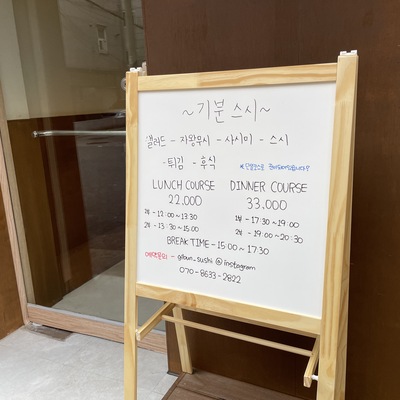 ~기분스시~
샐러드 - 자왕무시 - 사시미 - 스시
- 튀김 - 후식
※ 단일코스로 준비되어있습니다
LUNCH COURSE DINNER COURSE
22.000 33.000
1부 - 12:00 ~ 13:30 1부 - 17:30 ~ 19:00
2부 - 13:30 ~ 15:00 2부 - 19:00 ~ 20:30
BREAK TIME - 15:00 ~ 17:30
예약문의 - gibun_sushi @ instagram
070-8633-2822